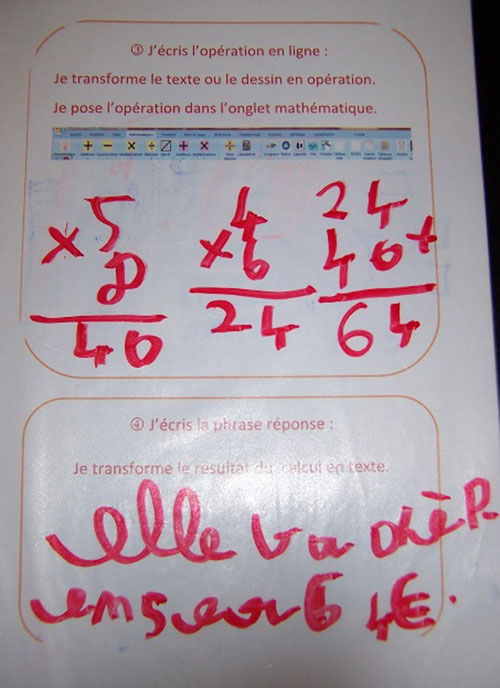 ③ J'écris l'opération en ligne :
Je transforme le texte ou le dessin en opération.
Je pose l'opération dans l'onglet mathématique.
× 5
8
40
4
× 6
24
24
40 +
64
④ J'écris la phrase réponse :
Je transforme le résultat du calcul en texte.
elle va dhèP-
enseor 64€.